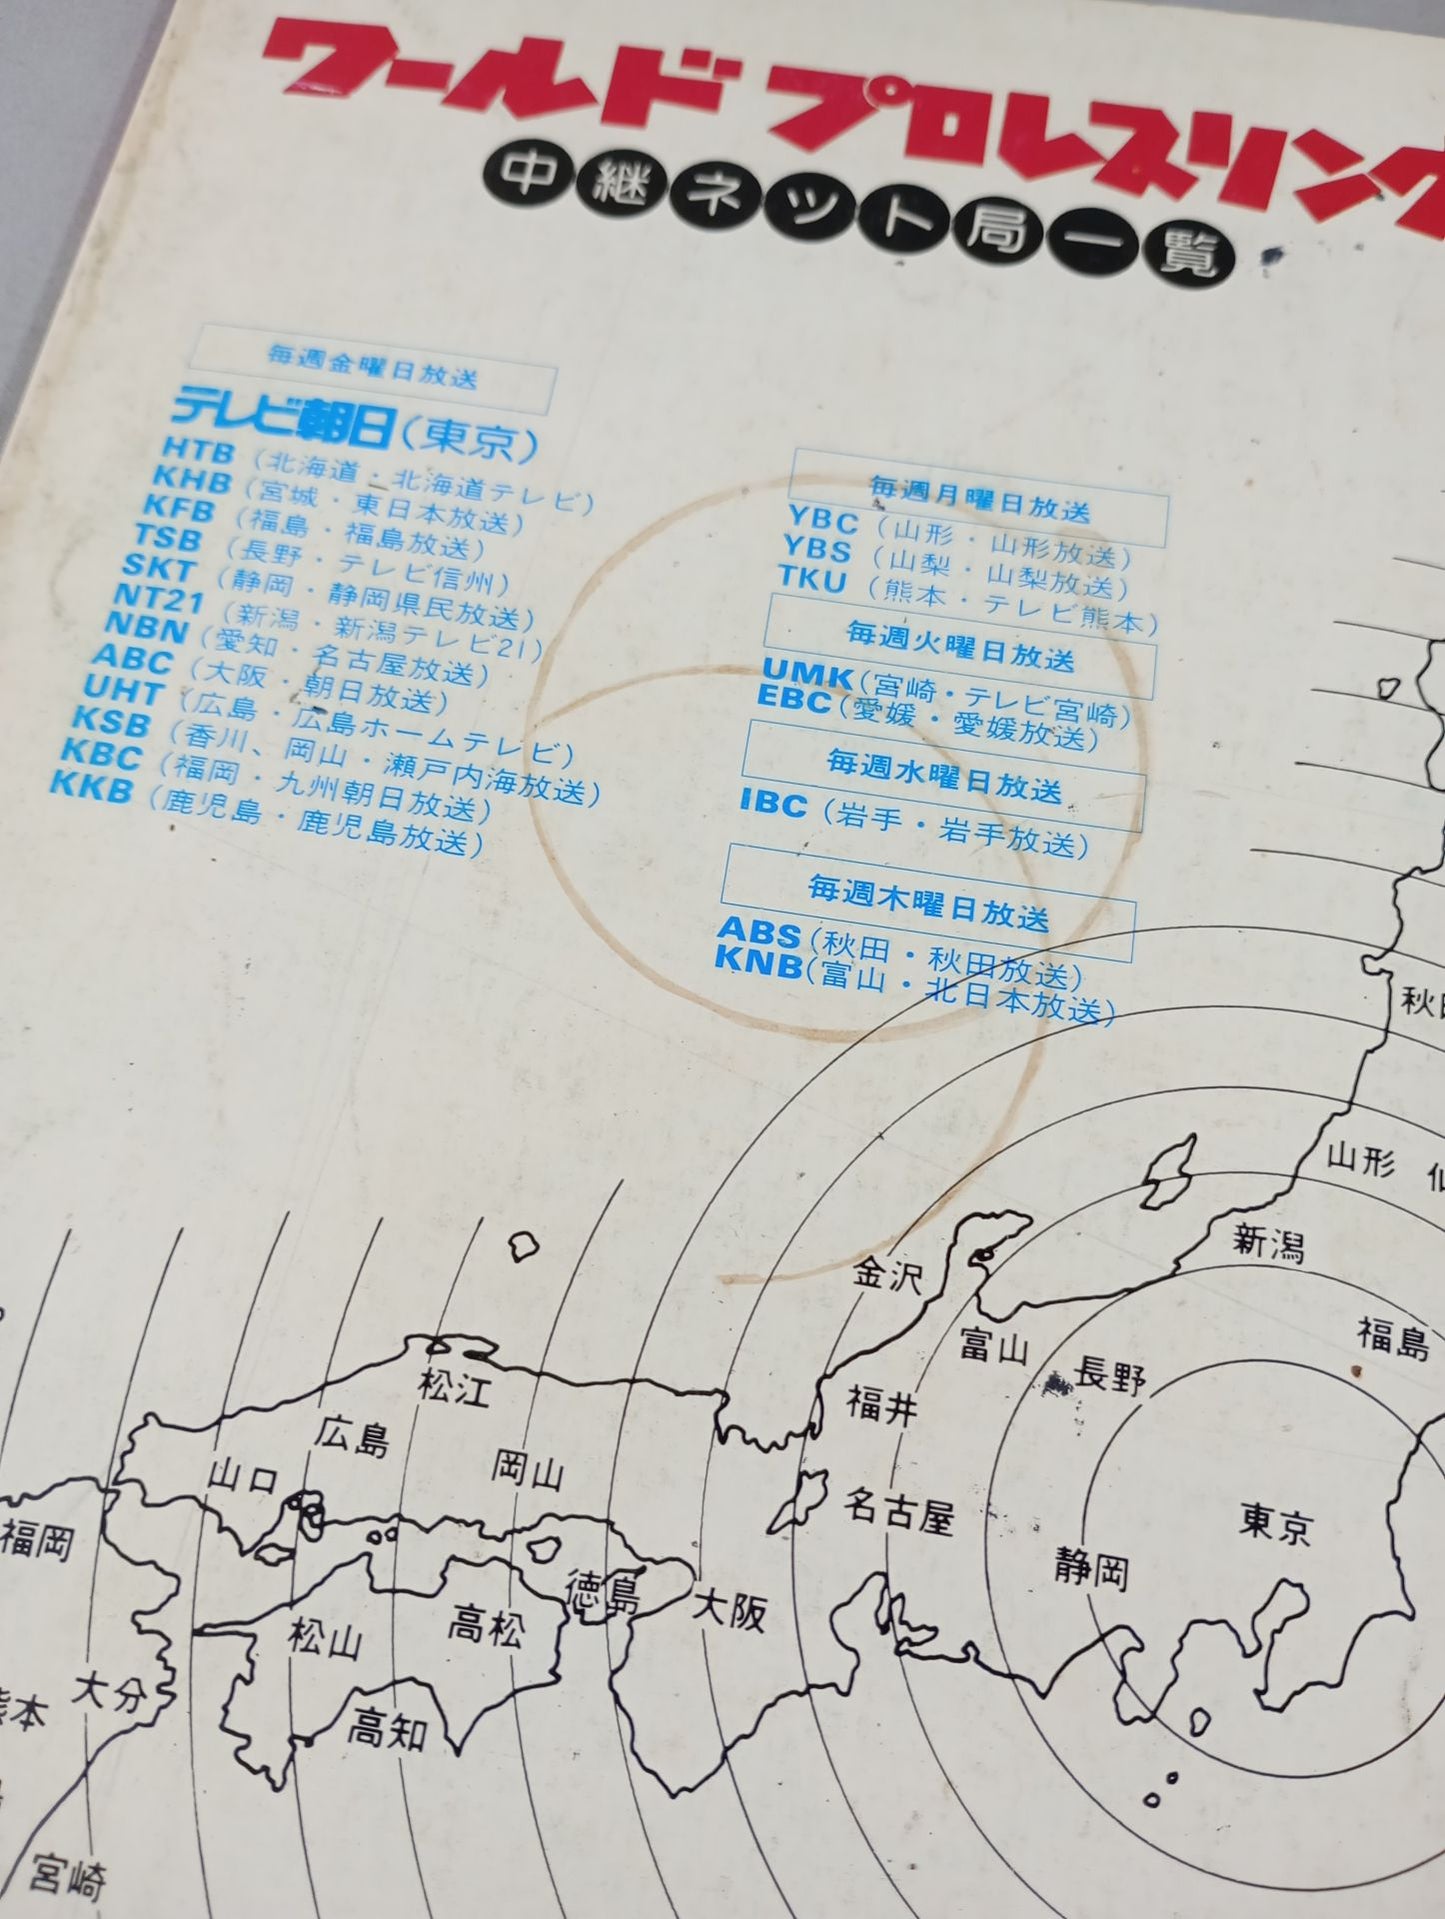 ワールドプロレスリング
中継ネット局一覧
毎週金曜日放送
テレビ朝日(東京)
HTB (北海道・北海道テレビ)
KHB (宮城・東日本放送)
KFB (福島・福島放送)
TSB (長野・テレビ信州)
SKT (静岡・静岡県民放送)
NT21 (新潟・新潟テレビ21)
NBN (愛知・名古屋放送)
ABC (大阪・朝日放送)
UHT (広島・広島ホームテレビ)
KSB (香川、岡山・瀬戸内海放送)
KBC (福岡・九州朝日放送)
KKB (鹿児島・鹿児島放送)
毎週月曜日放送
YBC (山形・山形放送)
YBS (山梨・山梨放送)
TKU (熊本・テレビ熊本)
毎週火曜日放送
UMK(宮崎・テレビ宮崎)
EBC(愛媛・愛媛放送)
毎週水曜日放送
IBC (岩手・岩手放送)
毎週木曜日放送
ABS(秋田・秋田放送)
KNB(富山・北日本放送)
秋田
山形 仙
新潟
金沢
福島
富山
長野
松江
福井
広島
岡山
山口
名古屋
東京
福岡
静岡
徳島
大阪
高松
松山
大分
熊本
高知
宮崎